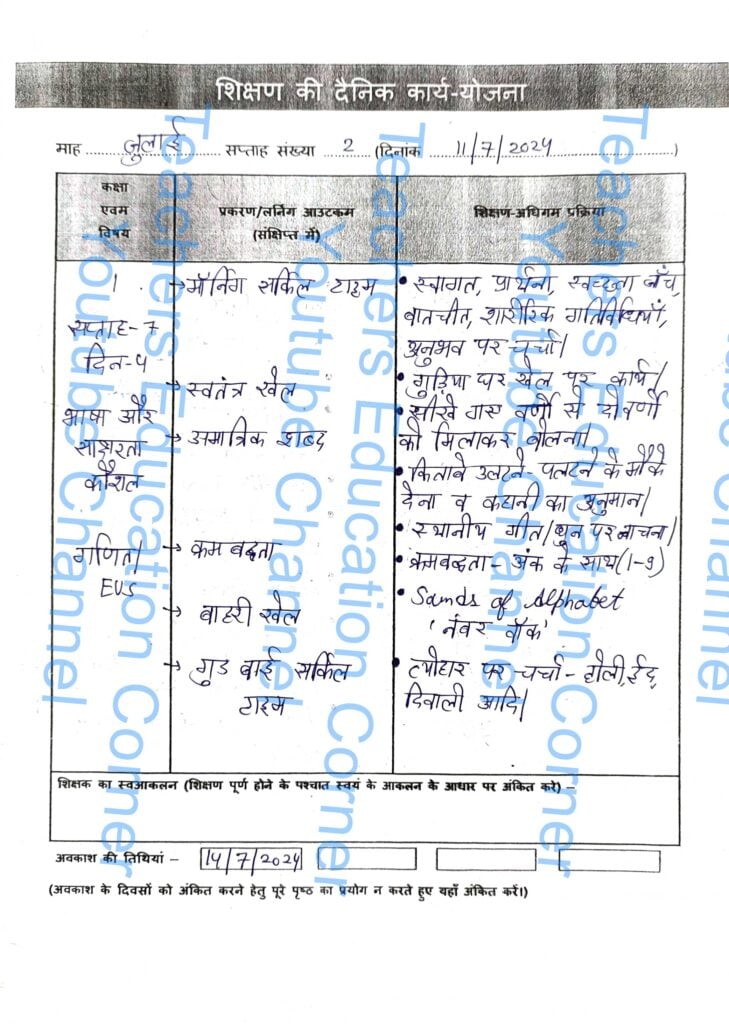 शिक्षण की दैनिक कार्य-योजना
माह जुलाई सप्ताह संख्या 2 (दिनांक 11/7/2024)
कक्षा एवम विषय
प्रकरण/लर्निंग आउटकम (संक्षिप्त में)
शिक्षण-अधिगम प्रक्रिया
1
सप्ताह-7
दिन-4
भाषा और
साक्षरता
कौशल
गणित/
EVS
→ मॉर्निंग सर्किल टाइम
→ स्वतंत्र खेल
→ अमात्रिक शब्द
→ क्रमबद्धता
→ बाहरी खेल
→ गुड बाई सर्किल
टाइम
• स्वागत, प्रार्थना, स्वच्छता जाँच,
बातचीत, शारीरिक गतिविधियाँ,
अनुभव पर चर्चा।
• गुड़िया घर खेल पर कार्य।
• सीखे गए वर्णों से दो वर्णों
को मिलाकर बोलना।
• किताबें उलटने-पलटने के मौके
देना व कहानी का अनुमान।
• स्थानीय गीत/धुन पर नाचना।
• क्रमबद्धता - अंक के साथ (1-9)
• Sounds of Alphabet
'नंबर वॉक'
• त्योहार पर चर्चा - होली, ईद,
दिवाली आदि।
शिक्षक का स्वआकलन (शिक्षण पूर्ण होने के पश्चात स्वयं के आकलन के आधार पर अंकित करे) –
अवकाश की तिथियां – 14/7/2024
(अवकाश के दिवसों को अंकित करने हेतु पूरे पृष्ठ का प्रयोग न करते हुए यहाँ अंकित करें।)
Teachers Education Corner
Youtube Channel
Teachers Education Corner
Youtube Channel
Teachers Education Corner
Youtube Channel